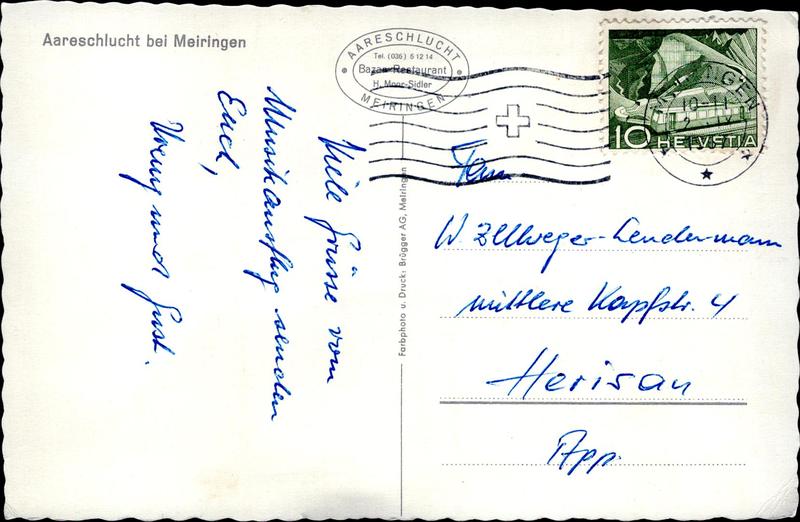 Aareschlucht bei Meiringen
AARESCHLUCHT
Tel. (036) 5 12 14
Bazar-Restaurant
H. Moor-Sidler
MEIRINGEN
10
HELVETIA
MEIRINGEN
10-11
Viele Grüsse vom
Musikausflug senden
Euch,
Vreny und Gust.
Farbphoto u. Druck: Brügger AG, Meiringen
Fam
W. Zellweger-Lendenmann
mittlere Kapfstr. 4
Herisau
App.